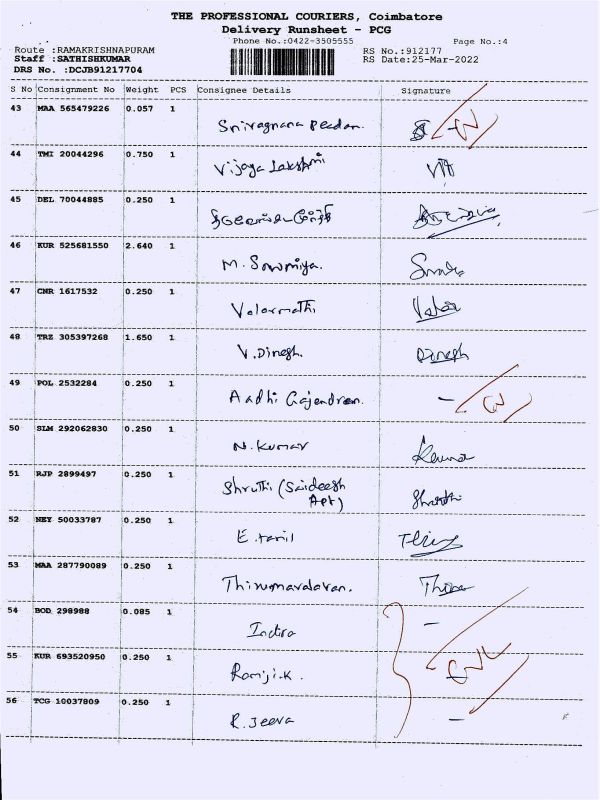 THE PROFESSIONAL COURIERS, Coimbatore
Delivery Runsheet - PCG
Phone No.:0422-3505555 Page No.:4
Route :RAMAKRISHNAPURAM RS No.:912177
Staff :SATHISHKUMAR RS Date:25-Mar-2022
DRS No. :DCJB91217704
S No Consignment No Weight PCS Consignee Details Signature
43 MAA 565479226 0.057 1
44 TMI 20044296 0.750 1 Vijaya Lakshmi
45 DEL 70044885 0.250 1
46 KUR 525681550 2.640 1 M. Sowmiya.
47 CNR 1617532 0.250 1 Valarmathi
48 TRZ 305397268 1.650 1 V.Dinesh. Dinesh
49 POL 2532284 0.250 1 Aadhi Gajendran. -
50 SLM 292062830 0.250 1 N. Kumar
51 RJP 2899497 0.250 1 Shruthi (Saideesh
Apt)
52 NEY 50033787 0.250 1 E. tamil
53 MAA 287790089 0.250 1 Thirumavalavan.
54 BOD 298988 0.085 1 Indira -
55 KUR 693520950 0.250 1 Ramji.K -
56 TCG 10037809 0.250 1 R. Jeeva -